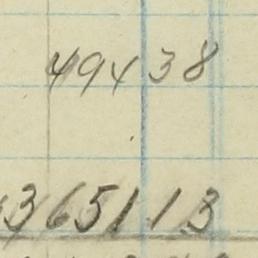 49438
365113